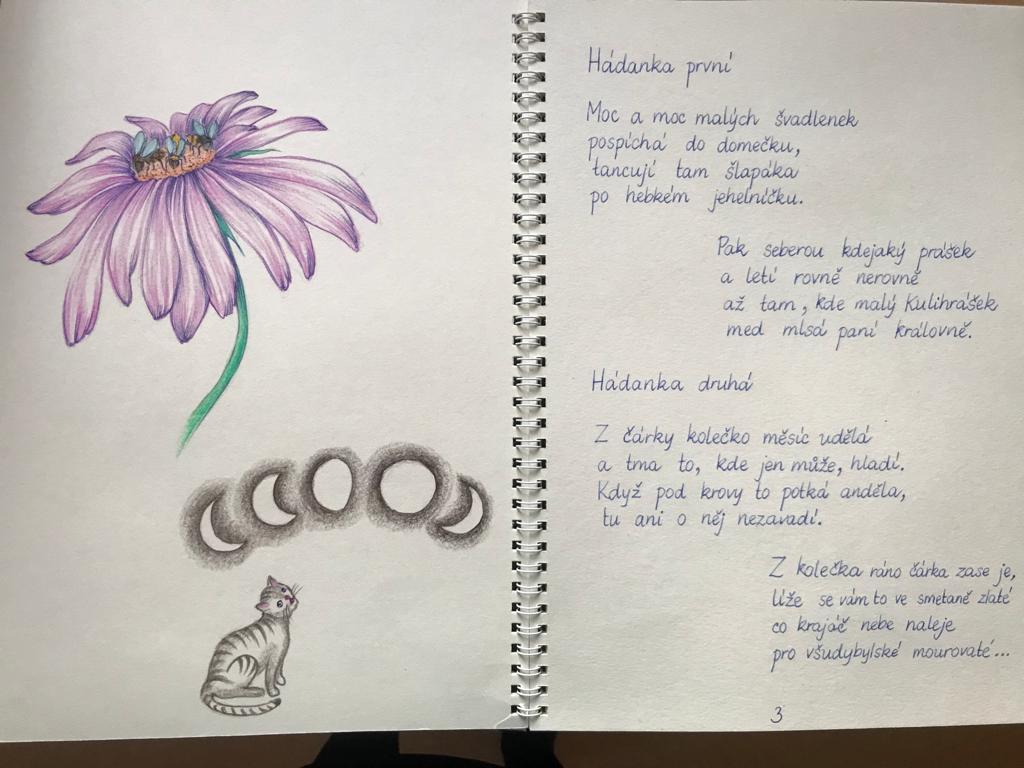 Hádanka první
Moc a moc malých švadlenek
pospíchá do domečku,
tancují tam šlapáka
po hebkém jehelníčku.
Pak seberou kdejaký prášek
a letí rovně nerovně
až tam, kde malý Kulihrášek
med mlsá paní královně.
Hádanka druhá
Z čárky kolečko měsíc udělá
a tma to, kde jen může, hladí.
Když pod krovy to potká anděla,
tu ani o něj nezavadí.
Z kolečka ráno čárka zase je,
líže se vám to ve smetaně zlaté
co krajáč nebe naleje
pro všudybylské mourovaté...
3